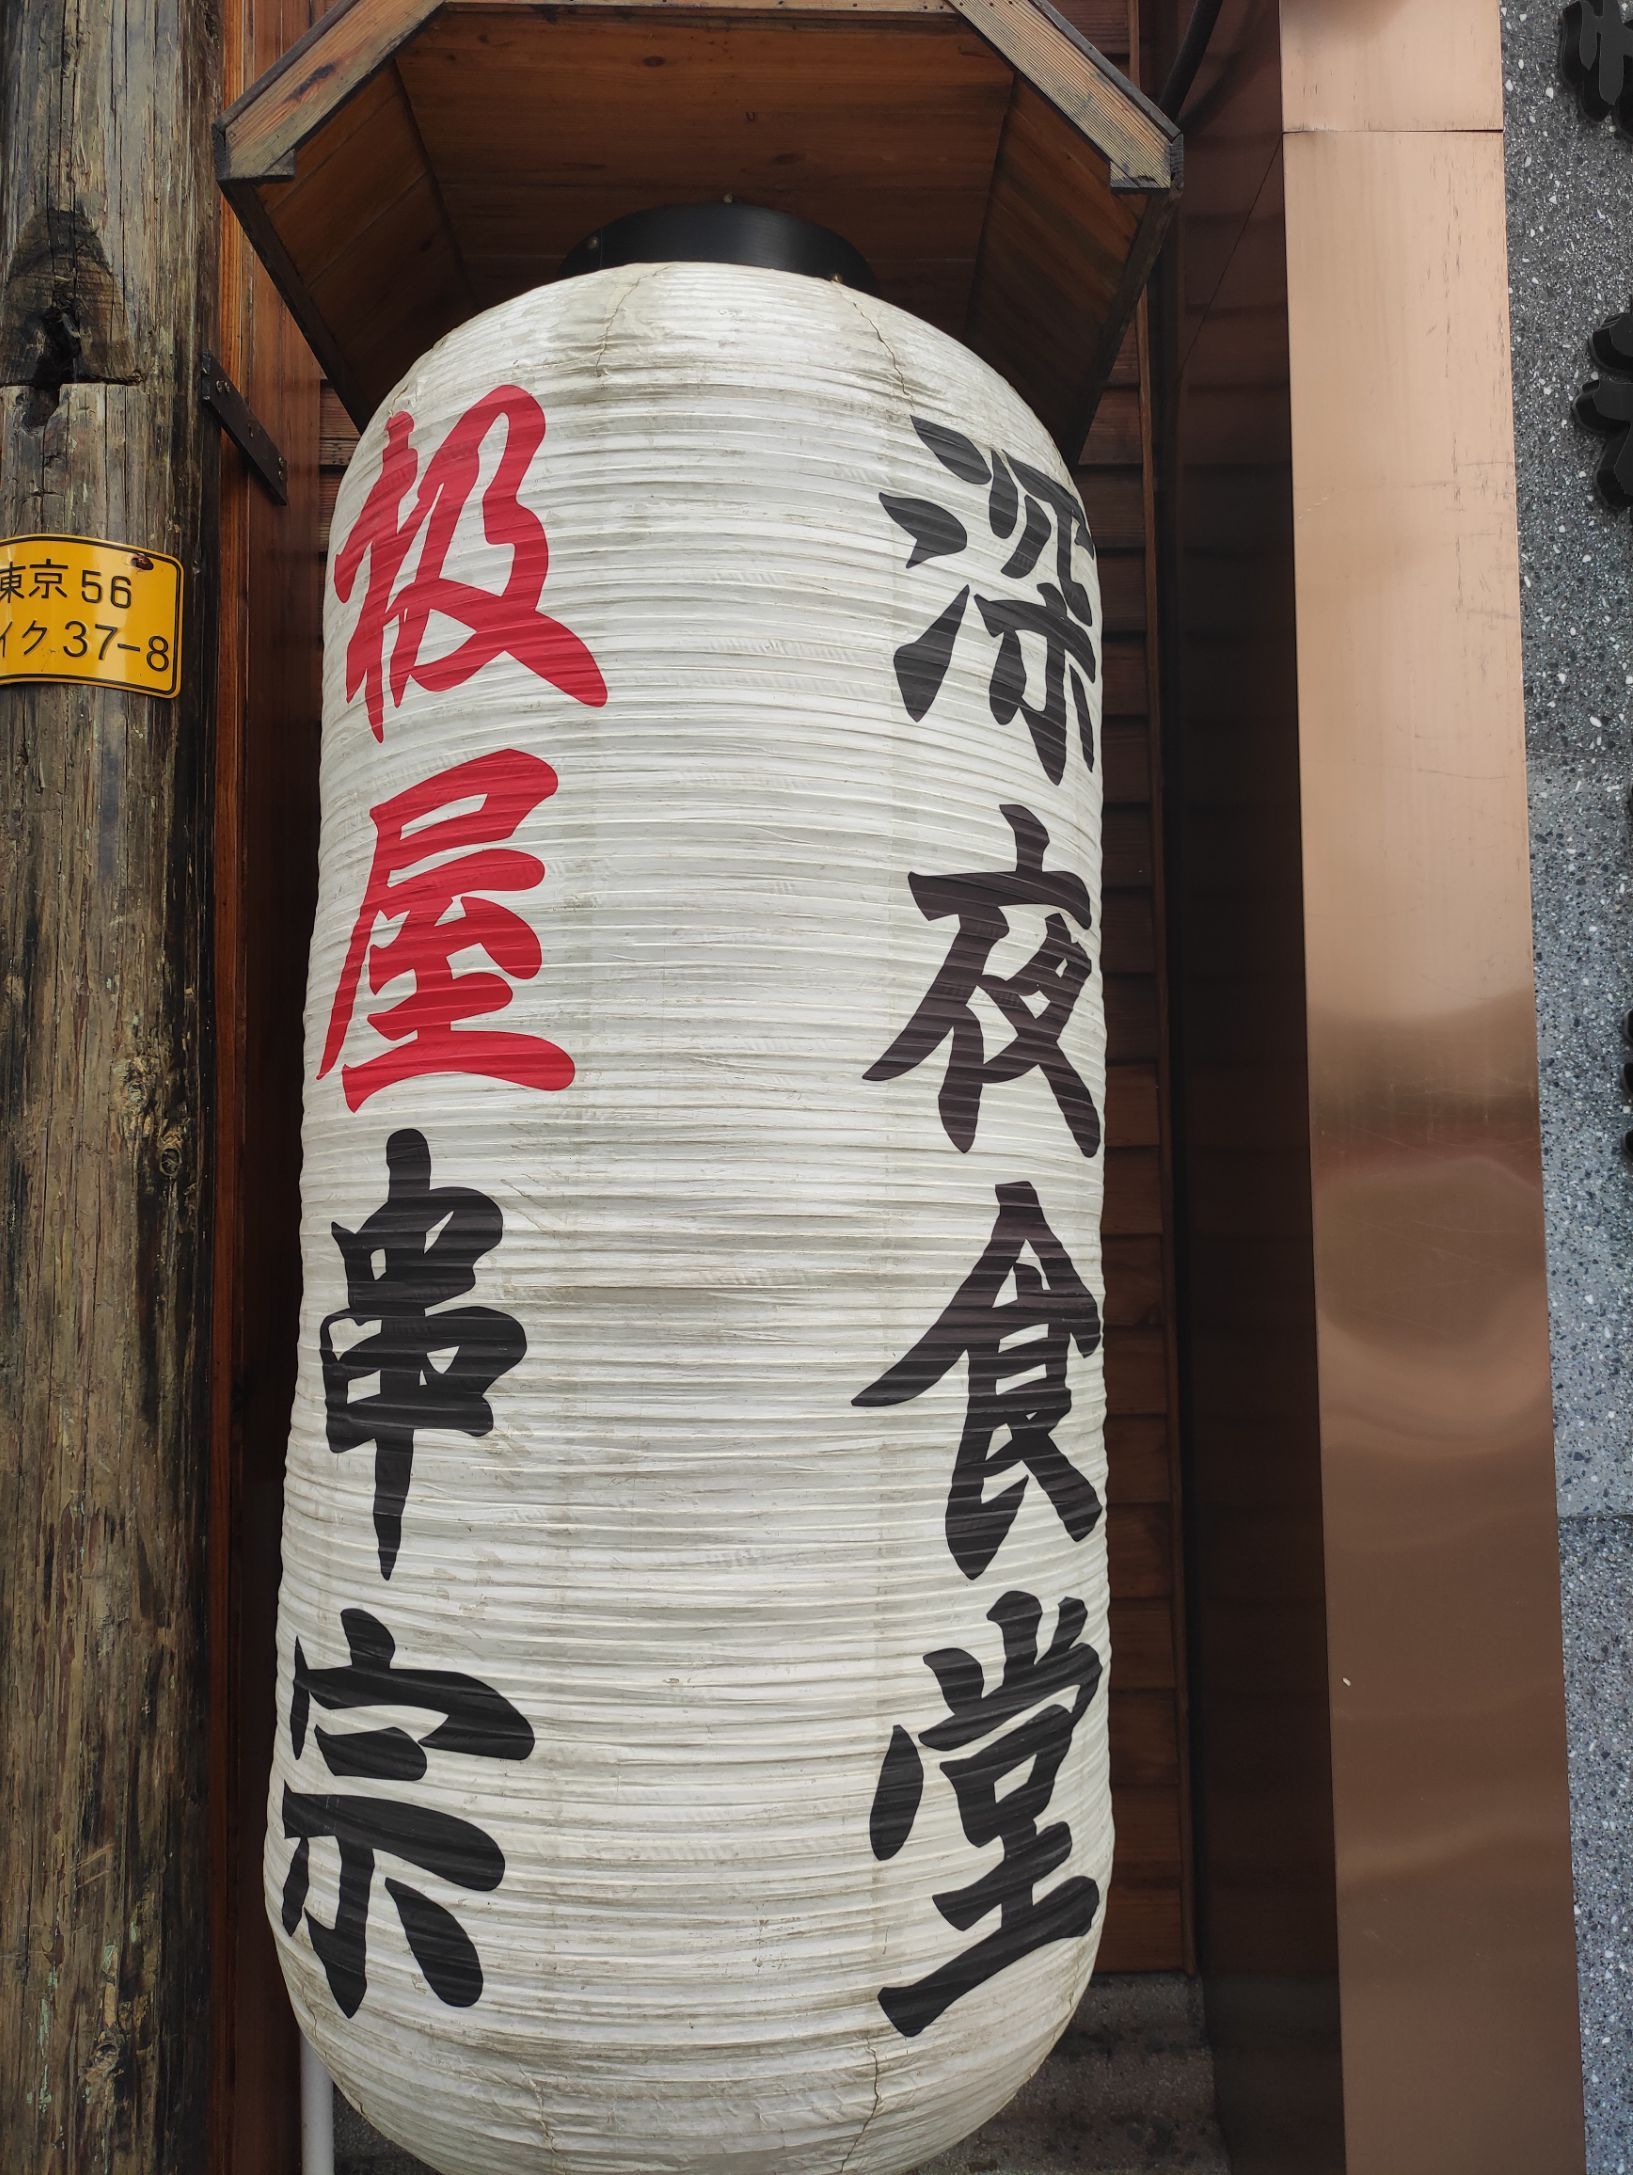 深夜食堂
极屋串宗
東京56
イク 37-8